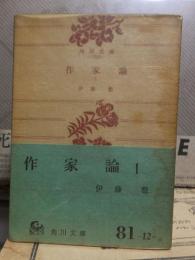 角川文庫
作家論
I
伊藤整
作家論 I
伊藤整
角川文庫
81
-12-